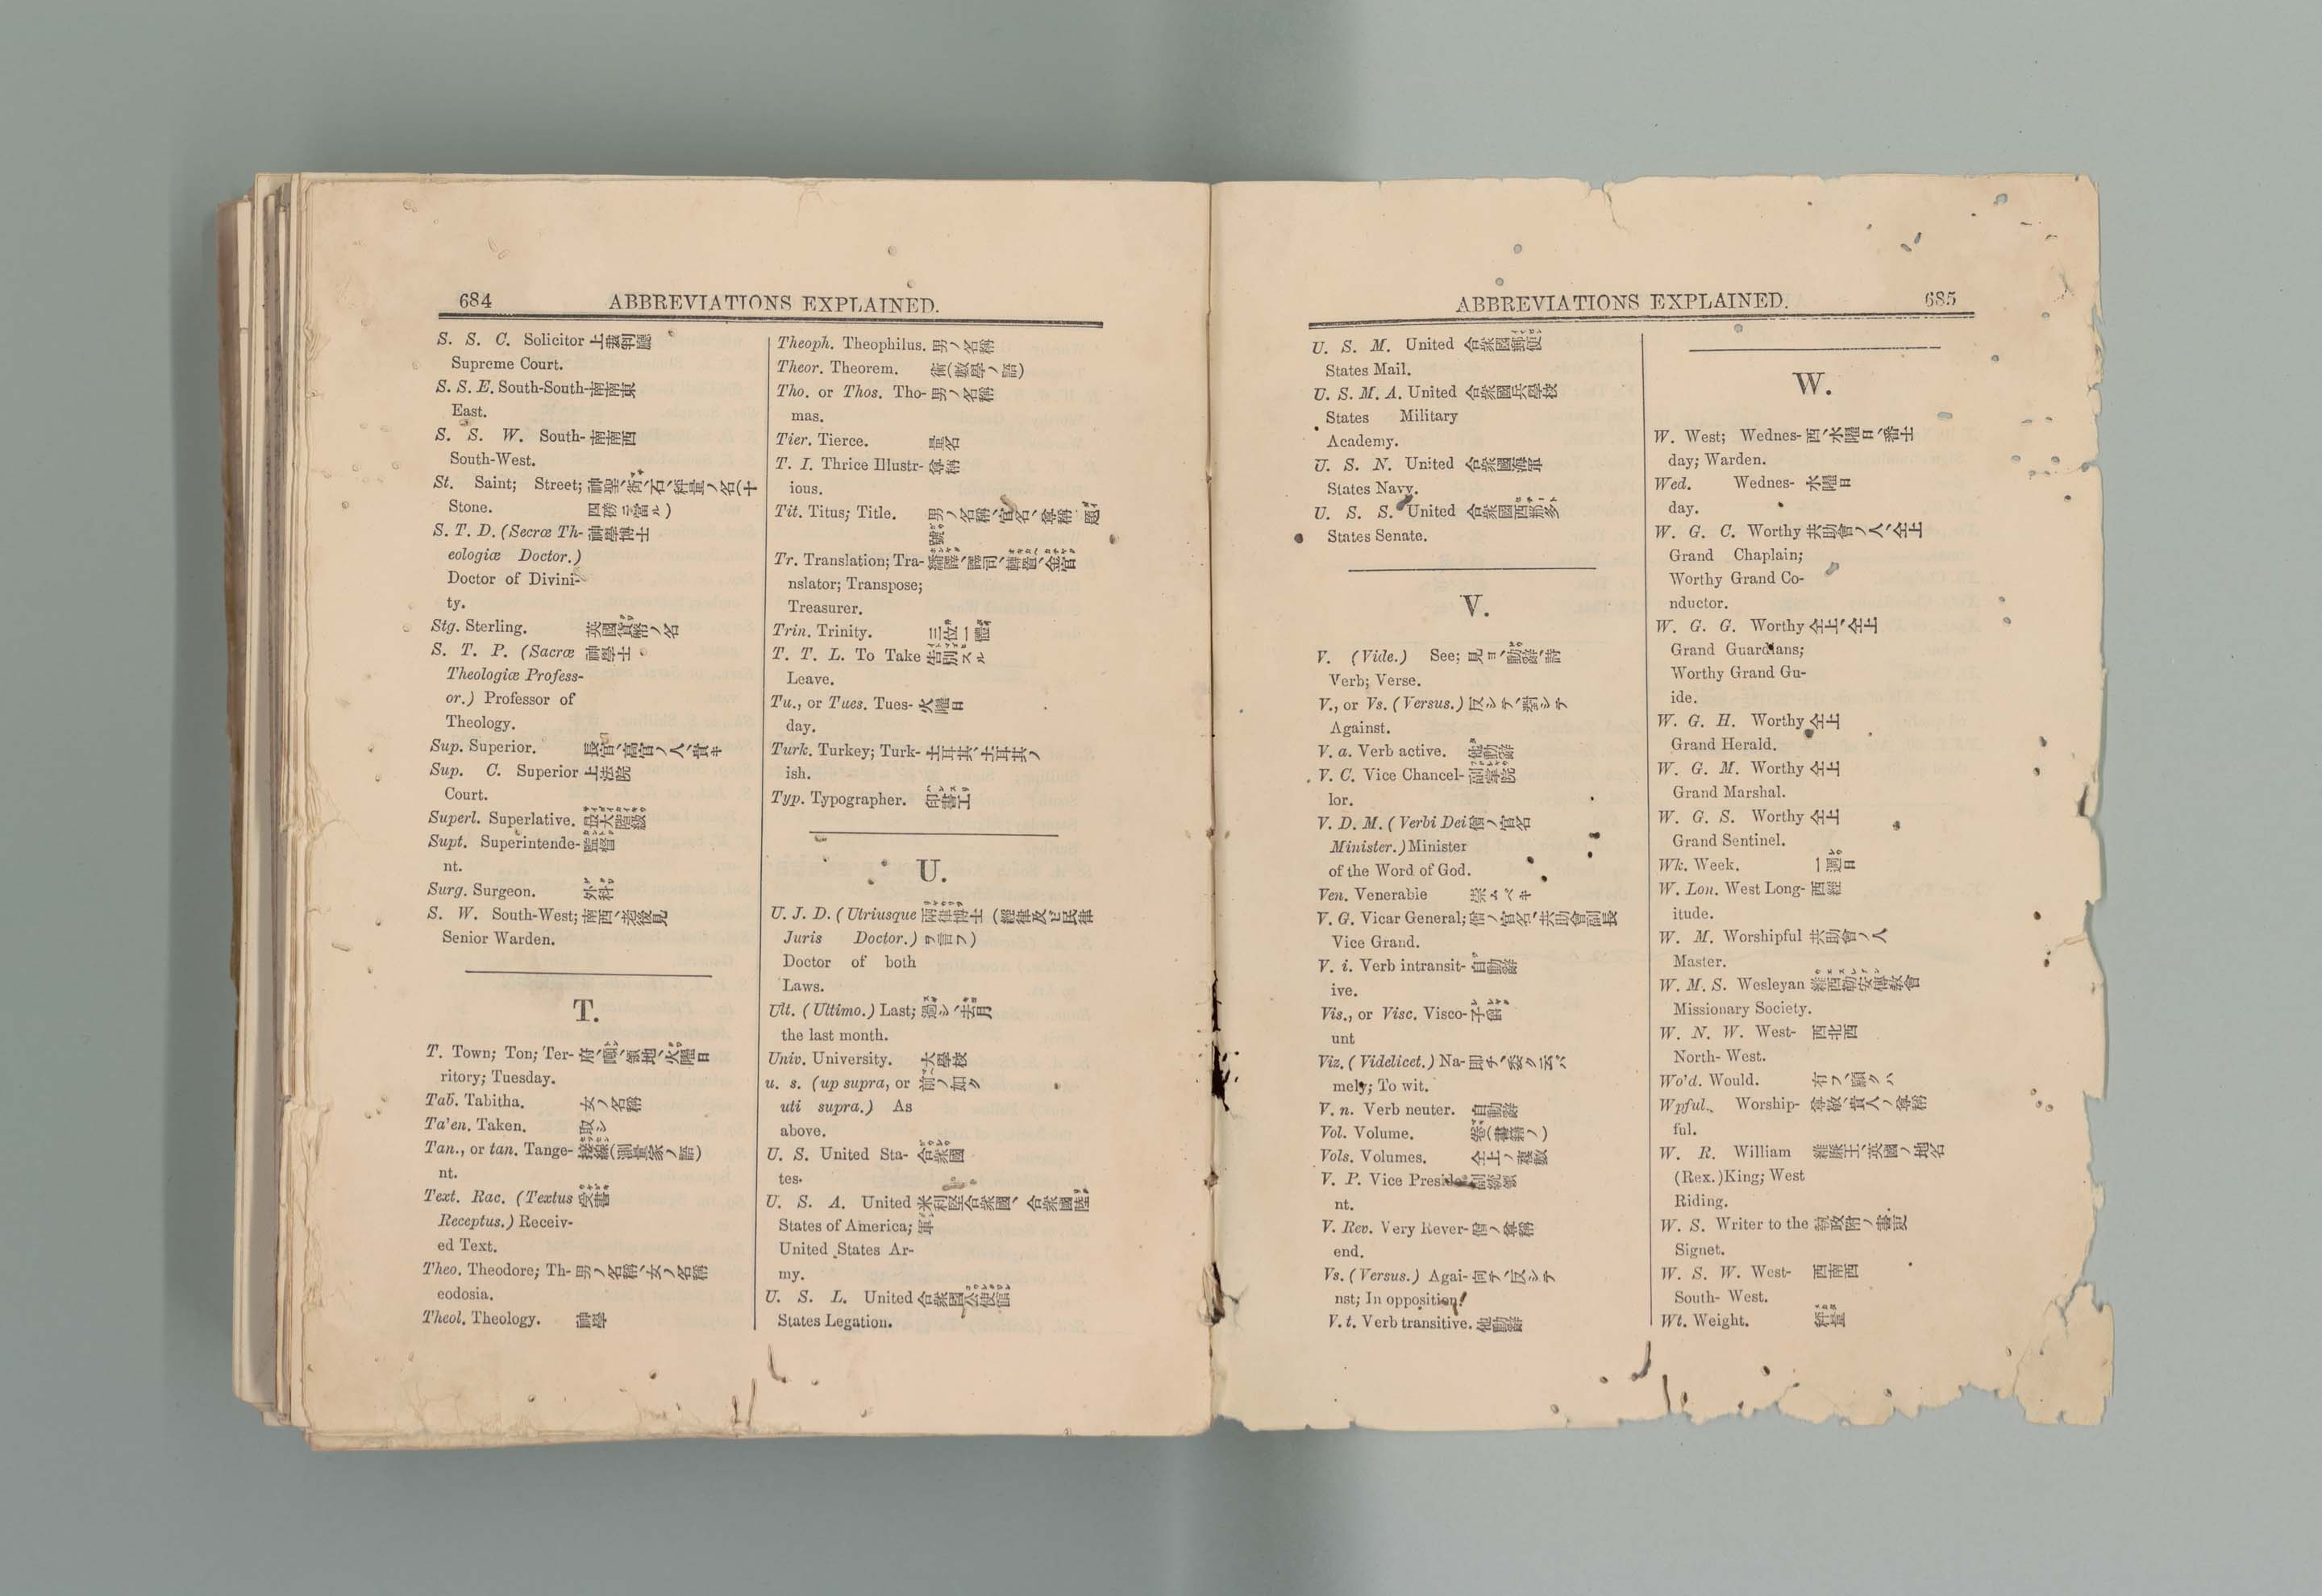 684 ABBREVIATIONS EXPLAINED.
S. S. C. Solicitor 上裁判廳
Supreme Court.
S. S. E. South-South- 南南東
East.
S. S. W. South- 南南西
South-West.
St. Saint; Street; 神聖、街、石、秤量ノ名(十
Stone. 四磅ニ當ル)
S. T. D. (Secræ Th- 神學博士
eologiæ Doctor.)
Doctor of Divini-
ty.
Stg. Sterling. 英國貨幣ノ名
S. T. P. (Sacræ 神學士
Theologiæ Profess-
or.) Professor of
Theology.
Sup. Superior. 長官、高官ノ人、貴キ
Sup. C. Superior 上法院
Court.
Superl. Superlative. 最大階級
Supt. Superintende- 監督
nt.
Surg. Surgeon. 外科
S. W. South-West; 南西、老後見
Senior Warden.
T.
T. Town; Ton; Ter- 府、噸、領地、火曜日
ritory; Tuesday.
Tab. Tabitha. 女ノ名稱
Ta'en. Taken. 取シ
Tan., or tan. Tange- 接線(測量家ノ語)
nt.
Text. Rac. (Textus 受書
Receptus.) Receiv-
ed Text.
Theo. Theodore; Th- 男ノ名稱、女ノ名稱
eodosia.
Theol. Theology. 神學
Theoph. Theophilus. 男ノ名稱
Theor. Theorem. 術(數學ノ語)
Tho. or Thos. Tho- 男ノ名稱
mas.
Tier. Tierce. 量名
T. I. Thrice Illustr- 尊稱
ious.
Tit. Titus; Title. 男ノ名稱、官名、尊稱 題
號
Tr. Translation; Tra- 繙譯、譯司、轉置、金官
nslator; Transpose;
Treasurer.
Trin. Trinity. 三位一體
T. T. L. To Take 告別スル
Leave.
Tu., or Tues. Tues- 火曜日
day.
Turk. Turkey; Turk- 土耳其、土耳其ノ
ish.
Typ. Typographer. 印書工
U.
U. J. D. (Utriusque 兩律博士 (經律及ビ民律
Juris Doctor.) ヲ言フ)
Doctor of both
Laws.
Ult. (Ultimo.) Last; 過シ、去月
the last month.
Univ. University. 大學校
u. s. (up supra, or 前ノ如ク
uti supra.) As
above.
U. S. United Sta- 合衆國
tes.
U. S. A. United 米利堅合衆國、合衆國陸
States of America; 軍
United States Ar-
my.
U. S. L. United 合衆國公使館
States Legation.
ABBREVIATIONS EXPLAINED. 685
U. S. M. United 合衆國郵便
States Mail.
U. S. M. A. United 合衆國兵學校
States Military
Academy.
U. S. N. United 合衆國海軍
States Navy.
U. S. S. United 合衆國西那多
States Senate.
V.
V. (Vide.) See; 見ヨ、動辭、詩
Verb; Verse.
V., or Vs. (Versus.) 反シテ、對シテ
Against.
V. a. Verb active. 他動辭
V. C. Vice Chancel- 副宰院
lor.
V. D. M. (Verbi Dei 僧ノ官名
Minister.) Minister
of the Word of God.
Ven. Venerable 崇ムベキ
V. G. Vicar General; 僧ノ官名、共助會副長
Vice Grand.
V. i. Verb intransit- 自動辭
ive.
Vis., or Visc. Visco- 子爵
unt
Viz. (Videlicet.) Na- 即チ、委ク云バ
mely; To wit.
V. n. Verb neuter. 自動辭
Vol. Volume. 卷(書籍ノ)
Vols. Volumes. 仝上ノ複數
V. P. Vice Preside- 副統領
nt.
V. Rev. Very Rever- 僧ノ尊稱
end.
Vs. (Versus.) Agai- 向テ、反シテ
nst; In opposition.
V. t. Verb transitive. 他動辭
W.
W. West; Wednes- 西、水曜日、番士
day; Warden.
Wed. Wednes- 水曜日
day.
W. G. C. Worthy 共助會ノ人、仝上
Grand Chaplain;
Worthy Grand Co-
nductor.
W. G. G. Worthy 仝上、仝上
Grand Guardians;
Worthy Grand Gu-
ide.
W. G. H. Worthy 仝上
Grand Herald.
W. G. M. Worthy 仝上
Grand Marshal.
W. G. S. Worthy 仝上
Grand Sentinel.
Wk. Week. 一週日
W. Lon. West Long- 西經
itude.
W. M. Worshipful 共助會ノ人
Master.
W. M. S. Wesleyan 維西勒安傳教會
Missionary Society.
W. N. W. West- 西北西
North- West.
Wo'd. Would. 冇フ、願クハ
Wpful. Worship- 尊敬、貴人ノ尊稱
ful.
W. R. William 維廉王、英國ノ地名
(Rex.) King; West
Riding.
W. S. Writer to the 執政附ノ書吏
Signet.
W. S. W. West- 西南西
South- West.
Wt. Weight. 秤量